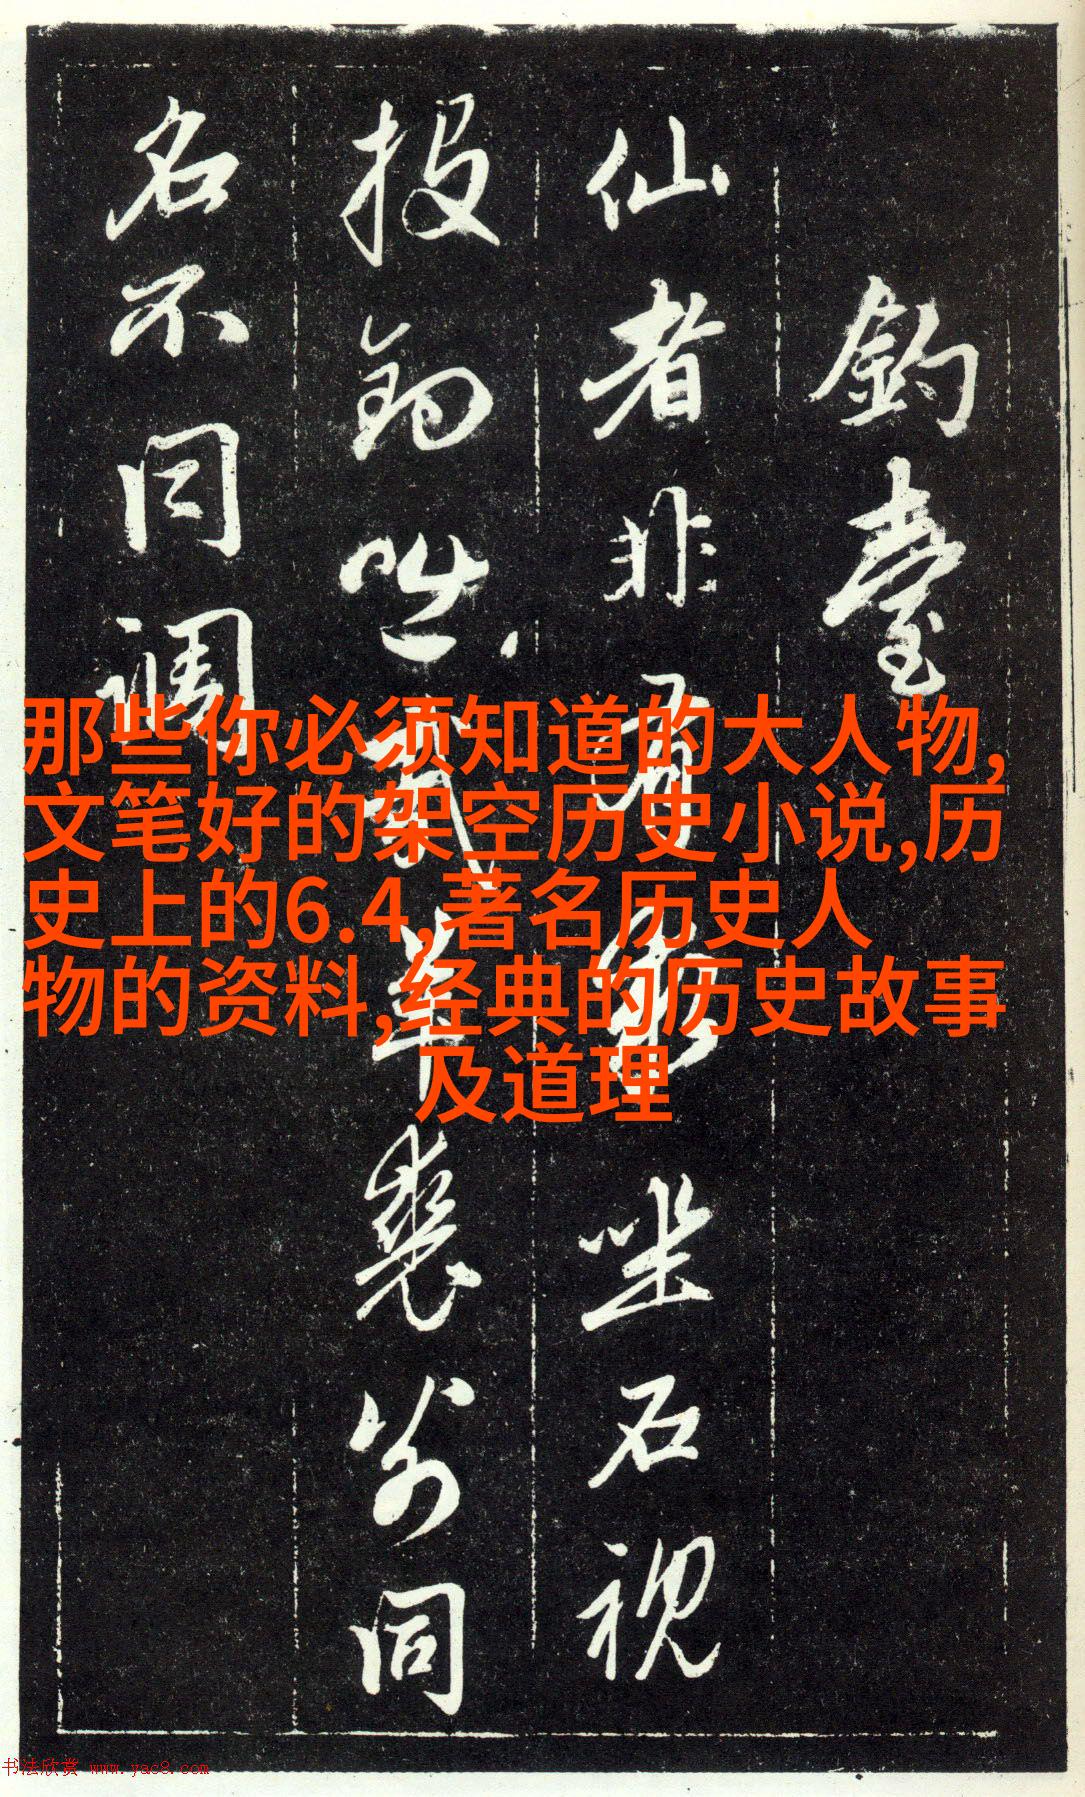 釣臺
仙者非有 坐石視
投釣咄哉羊裘翁同
名不同調
那些你必须知道的大人物,
文笔好的架空历史小说,历
史上的6.4,著名历史人
物的资料,经典的历史故事
及道理
书法欣赏 www.yac8.com